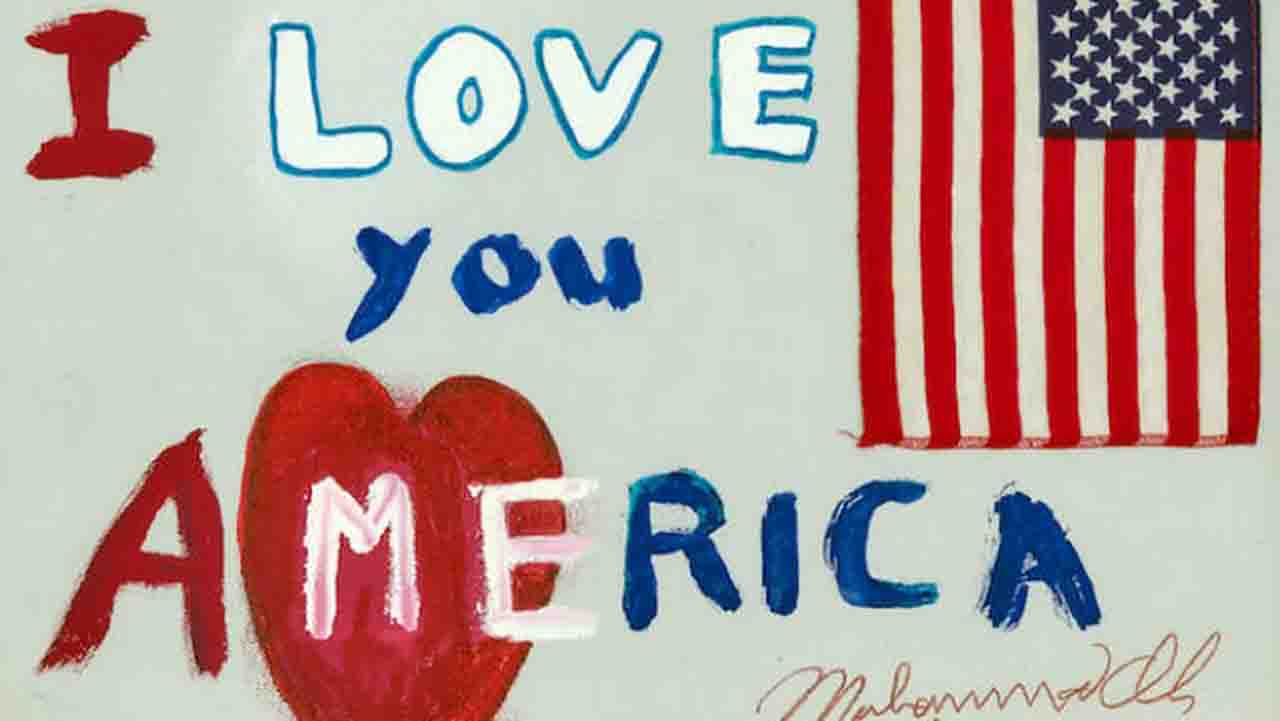 I LOVE
you
AMERICA
Muhammad Ali